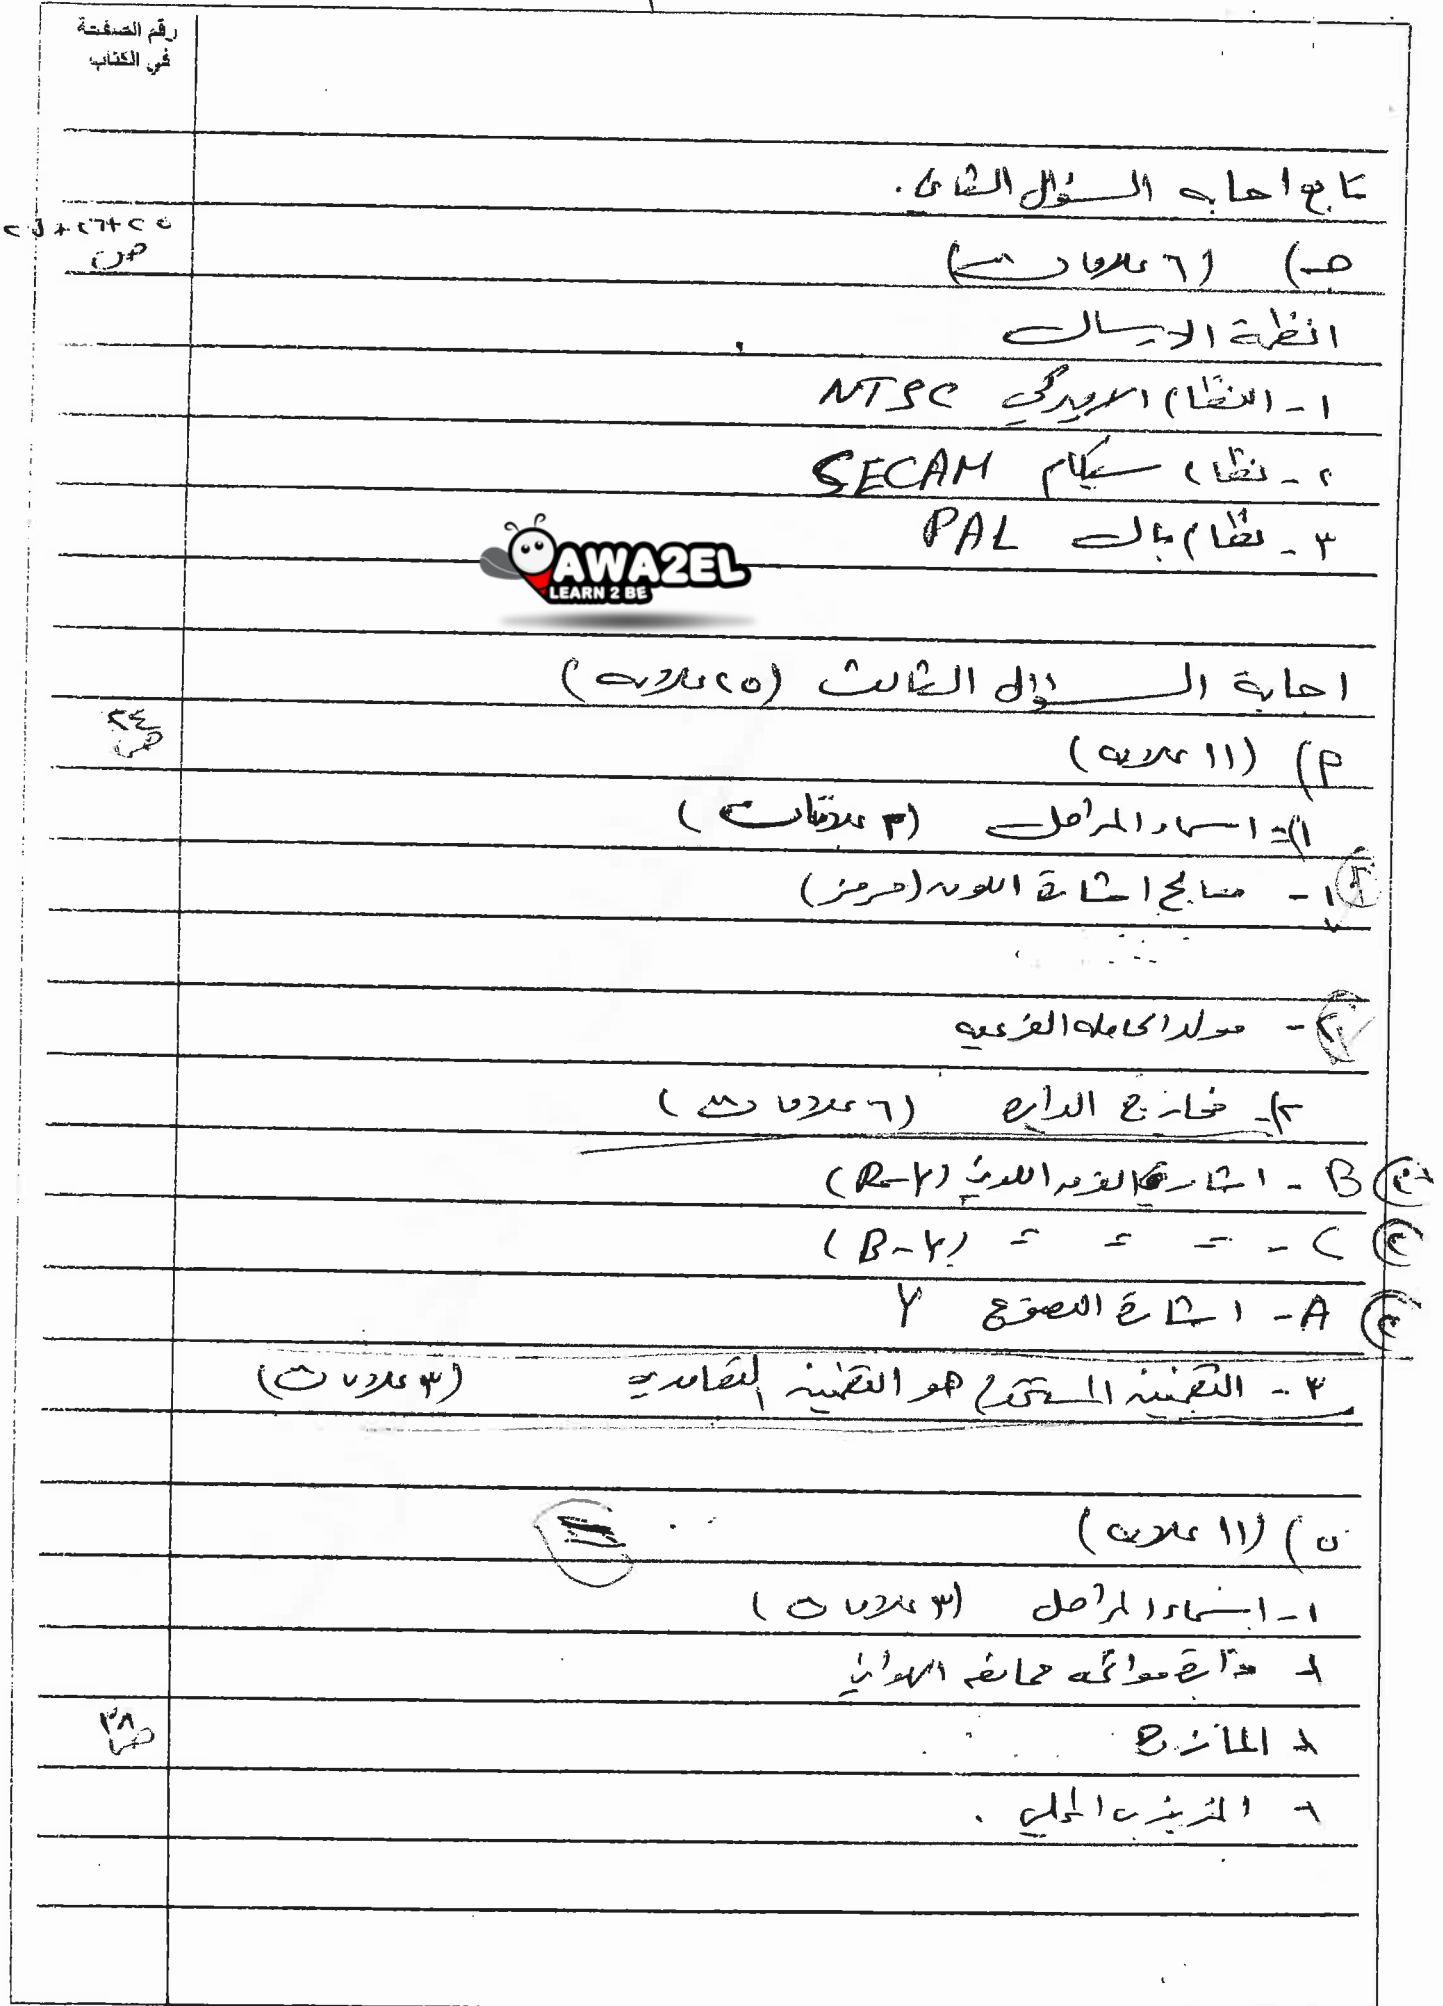 رقم الصفحة
في الكتاب
تابع اجابه السؤال الثاني.
جـ) (٦ علامات)
ص
انظمة الارسال
١- النظام الامريكي NTSC
٢- نظام سيكام SECAM
٣- نظام بال PAL
AWA2EL
LEARN 2 BE
اجابة السؤال الثالث (٢٥ علامه)
٢٤
ص
أ) (١١ علامه)
١)- اسماء المراحل (٣ علامات)
١- معالج اشارة اللون (مرمز)
٢- مولد الحامله الفرعيه
٢)- مخارج الداره (٦ علامات)
B - اشارة الفرق اللوني (R-Y)
C - = = = (B-Y)
A - اشارة النصوع Y
٣- التضمين المستخدم هو التضمين التعامدي (٣ علامات)
ب) (١١ علامه)
١- اسماء المراحل (٣ علامات)
دارة موائمه ممانعه الهوائي
٣٨
ص
المازج
المذبذب المحلي.